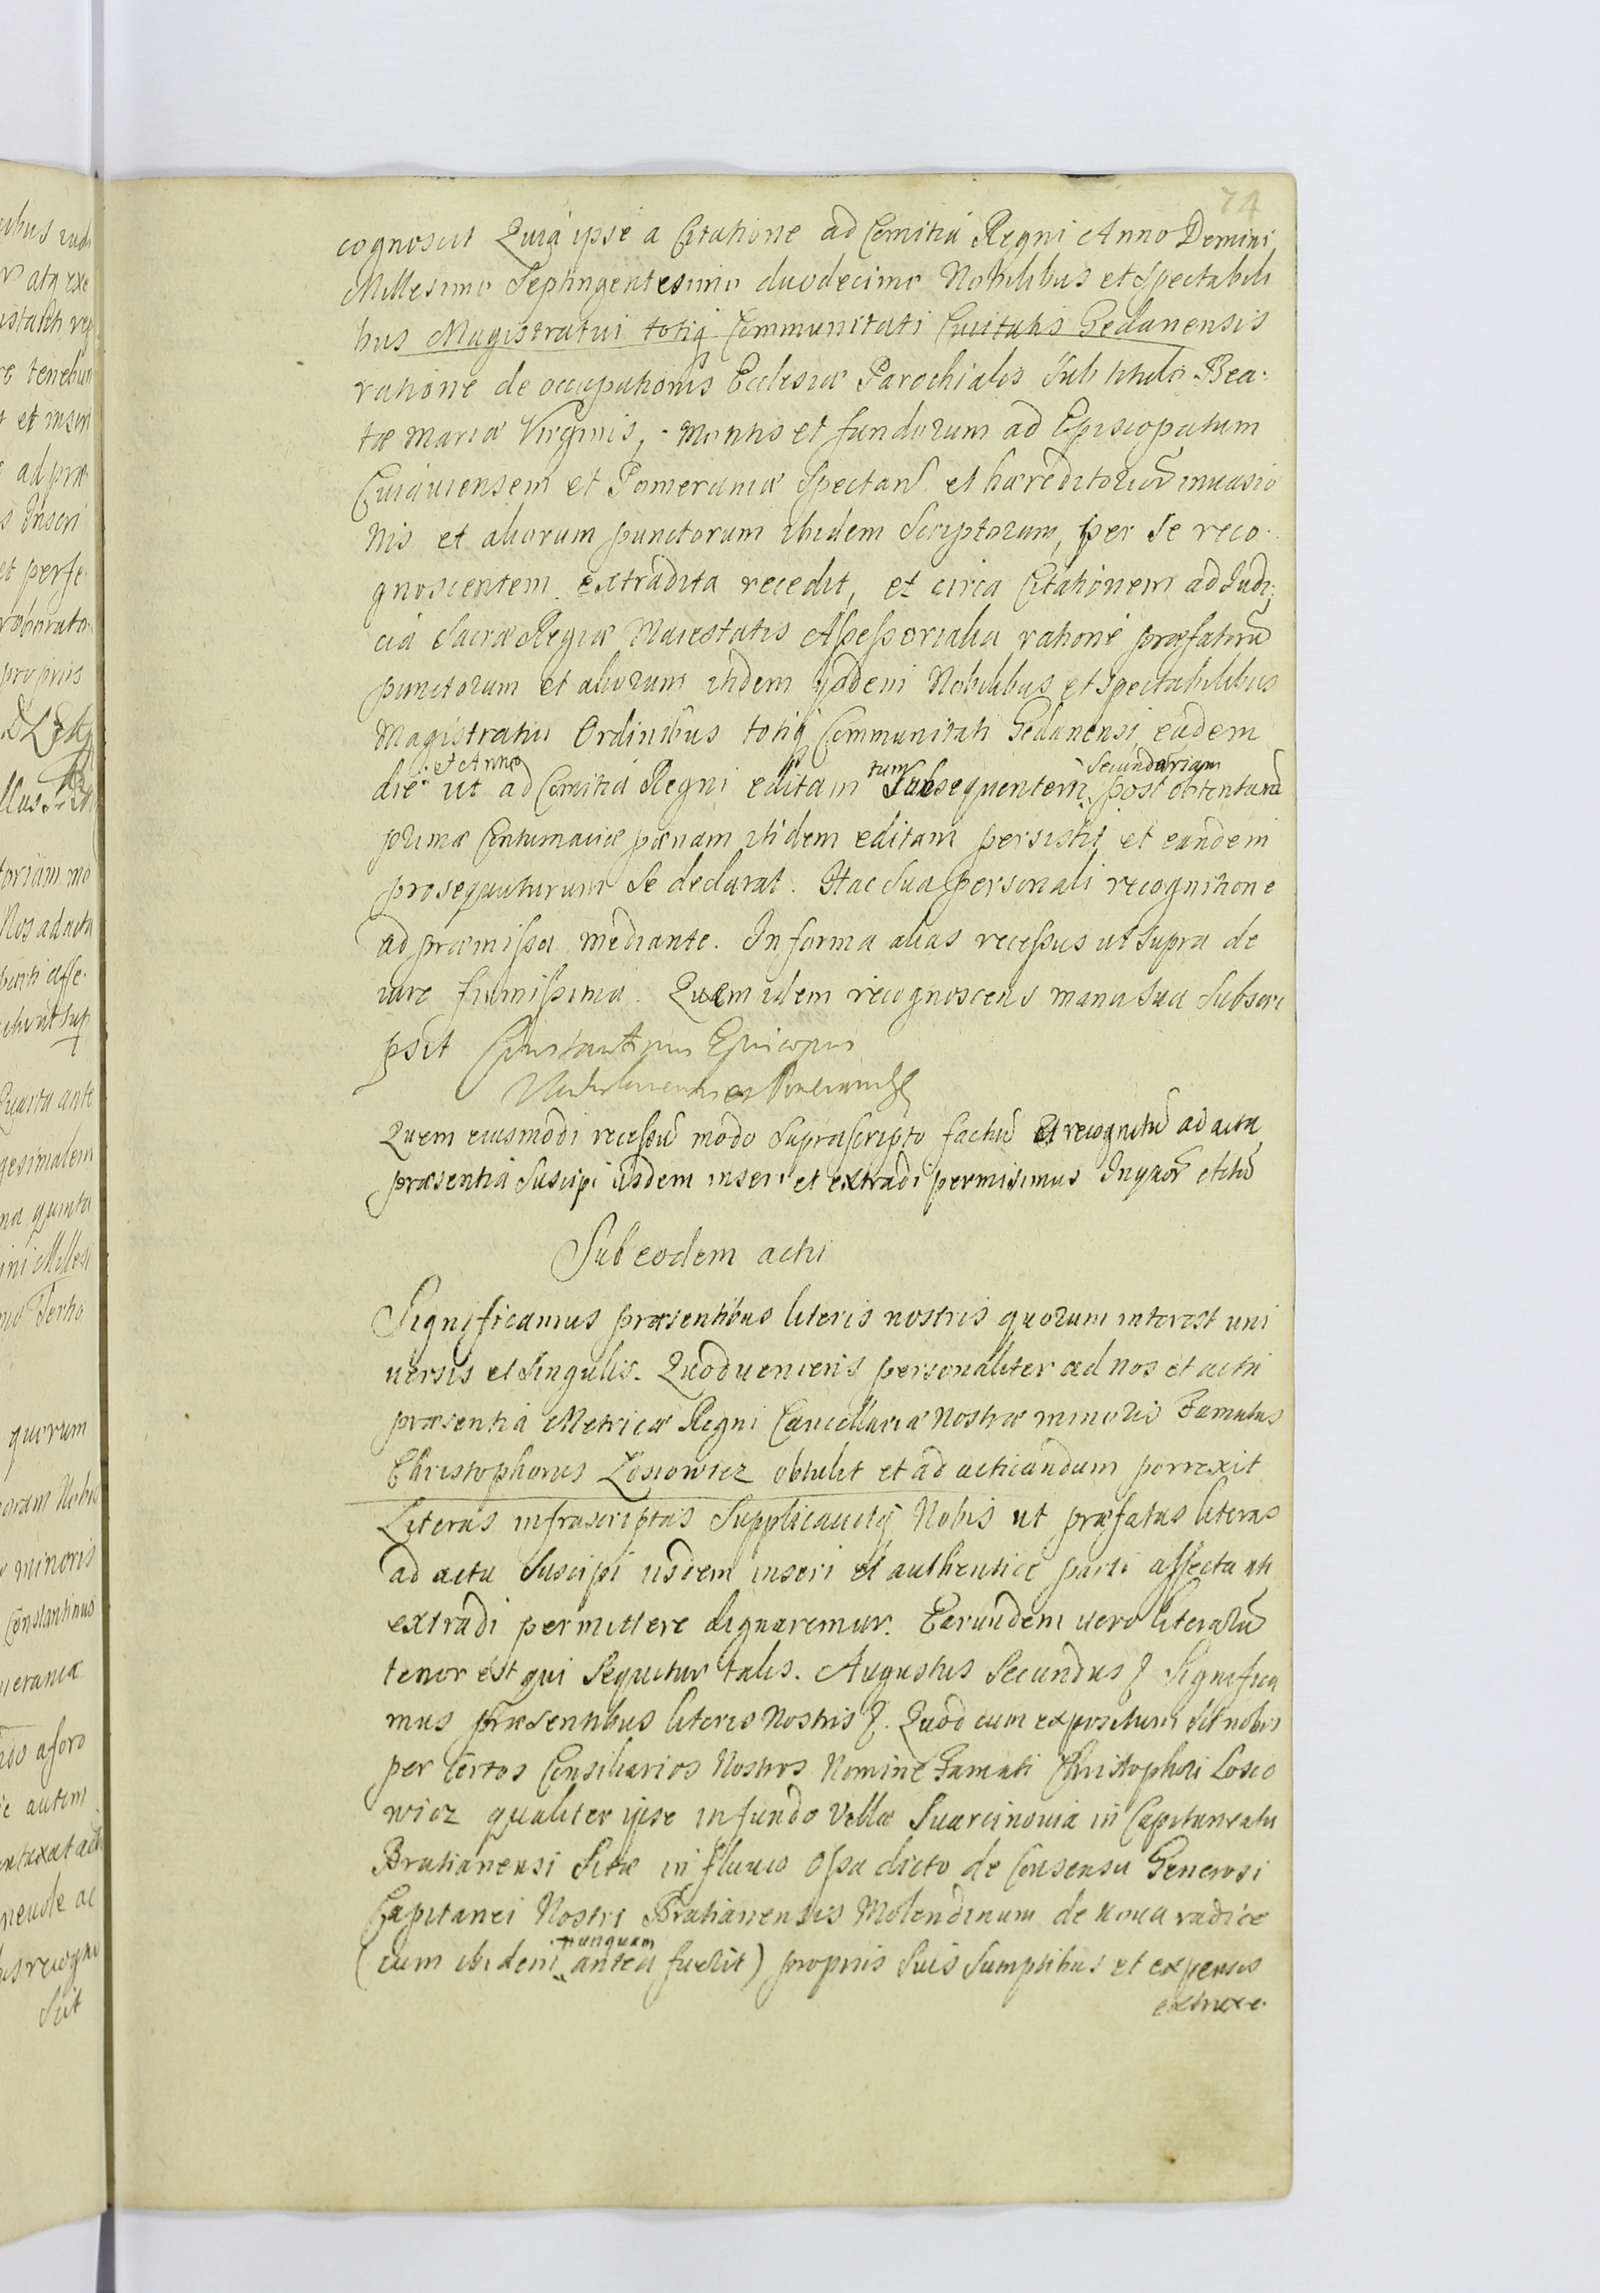 74
cognoscit Quia ipse a Citatione ad Comitia Regni Anno Domini
Millesimo Septingentesimo duodecimo Nobilibus et Spectabili
bus Magistratui totiq Communitati Civitatis Gedanensis
ratione de occupationis Ecclesiæ Parochialis Sub titulo Bea-
tæ Mariæ Virginis, Montis et fundorum ad Episcopatum
Cuiauiensem et Pomeraniæ Spectan. et hæreditoriũ inuasio
nis et aliorum punctorum ibidem Scriptorum, per Se reco-
gnoscentem extradita recedit, et circa Citationem ad Judi-
cia Sacræ Regiæ Maiestatis Assessorialia ratione præfatorũ
punctorum et aliorum itidem ijsdem Nobilibus et Spectabilibus
Magistratui Ordinibus totiq Communitati Gedanensi eadem
die et Anno ut ad Comitia Regni editam tum Subsequentem Secundariam post obtentam
primæ Contumaciæ pænam itidem editam persistit et eandem
prosequuturum Se declarat. Hac Sua personali recognitione
ad præmissa mediante. In forma alias recessus ut Supra de
iure firmissima. Quem idem recognoscens manu Sua Subscri
psit Constantinus Episcopus
Vladislaviensis et Pomeraniæ
Quem eiusmodi recessũ modo Suprascripto factũ et recognitũ ad acta
præsentia Suscipi iisdem inseri et extradi permisimus In quor etcũ
Sub eodem actu
Significamus præsentibus literis nostris quorum interest uni
uersis et Singulis. Quod ueniens personaliter ad nos et acta
præsentia Metricæ Regni Cancellariæ Nostræ minoris Famatus
Christophorus Losiowicz obtulit et ad acticandum porrexit
Literas infrascriptas Supplicauitq Nobis ut præfatas literas
ad acta Suscipi iisdem inseri et authentice parti affectanti
extradi permittere dignaremur. Earundem uero literarũ
tenor est qui Sequitur talis. Augustus Secundus &. Significa
mus præsentibus literis Nostris &. Quod cum expositum sit nobis
per Certos Consiliarios Nostros Nomine Famati Christophori Losio
wicz qualiter ipse in fundo Villæ Suarcinouia in Capitaneatu
Bratianensi Sitæ in fluuio Ossa dicto de Consensu Generosi
Capitanei Nostri Bratianensis Molendinum de noua radice
(cum ibidem nunquam antea fuerit) proprijs Suis Sumptibus et expensis
extruxe-